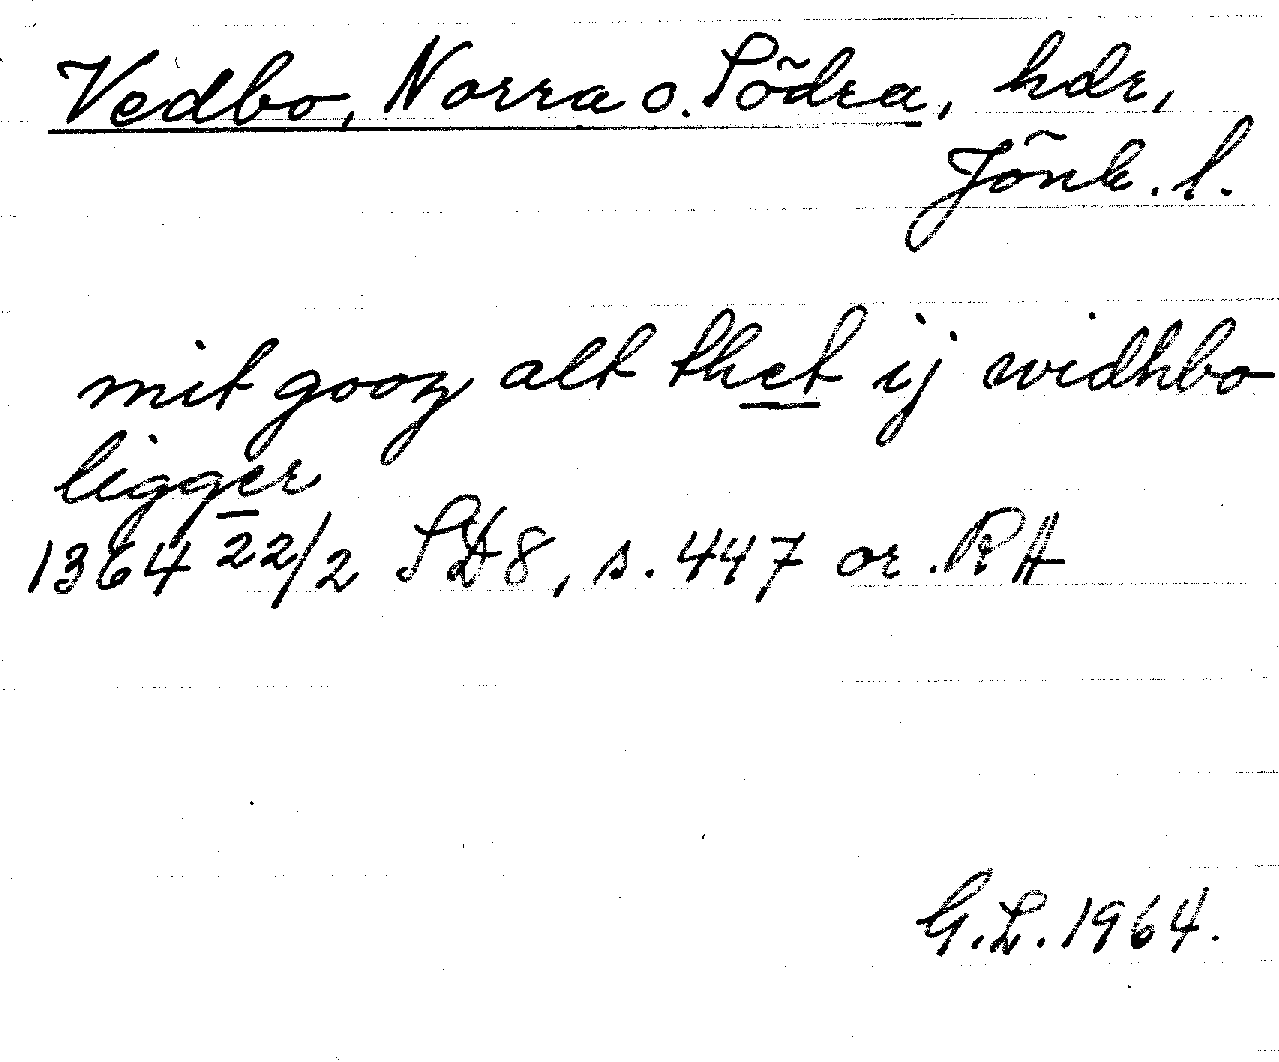 Vedbo, Norra o. Södra, hdr,
Jönk. l.
mit gooz alt thet ij widhbo
ligger
1364 22/2 SD 8, s. 447 or. RA
G.L. 1964.